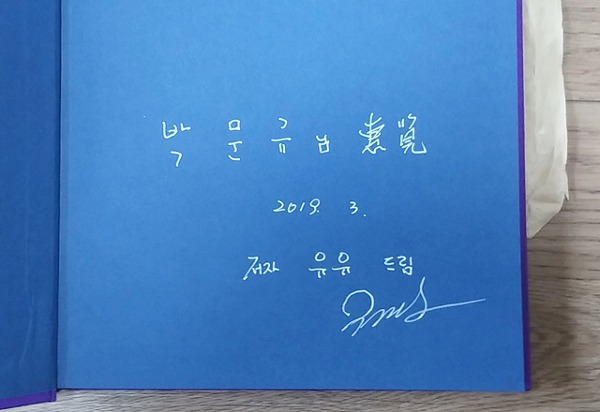 박문규님 惠覽
2019. 3.
저자 유유 드림